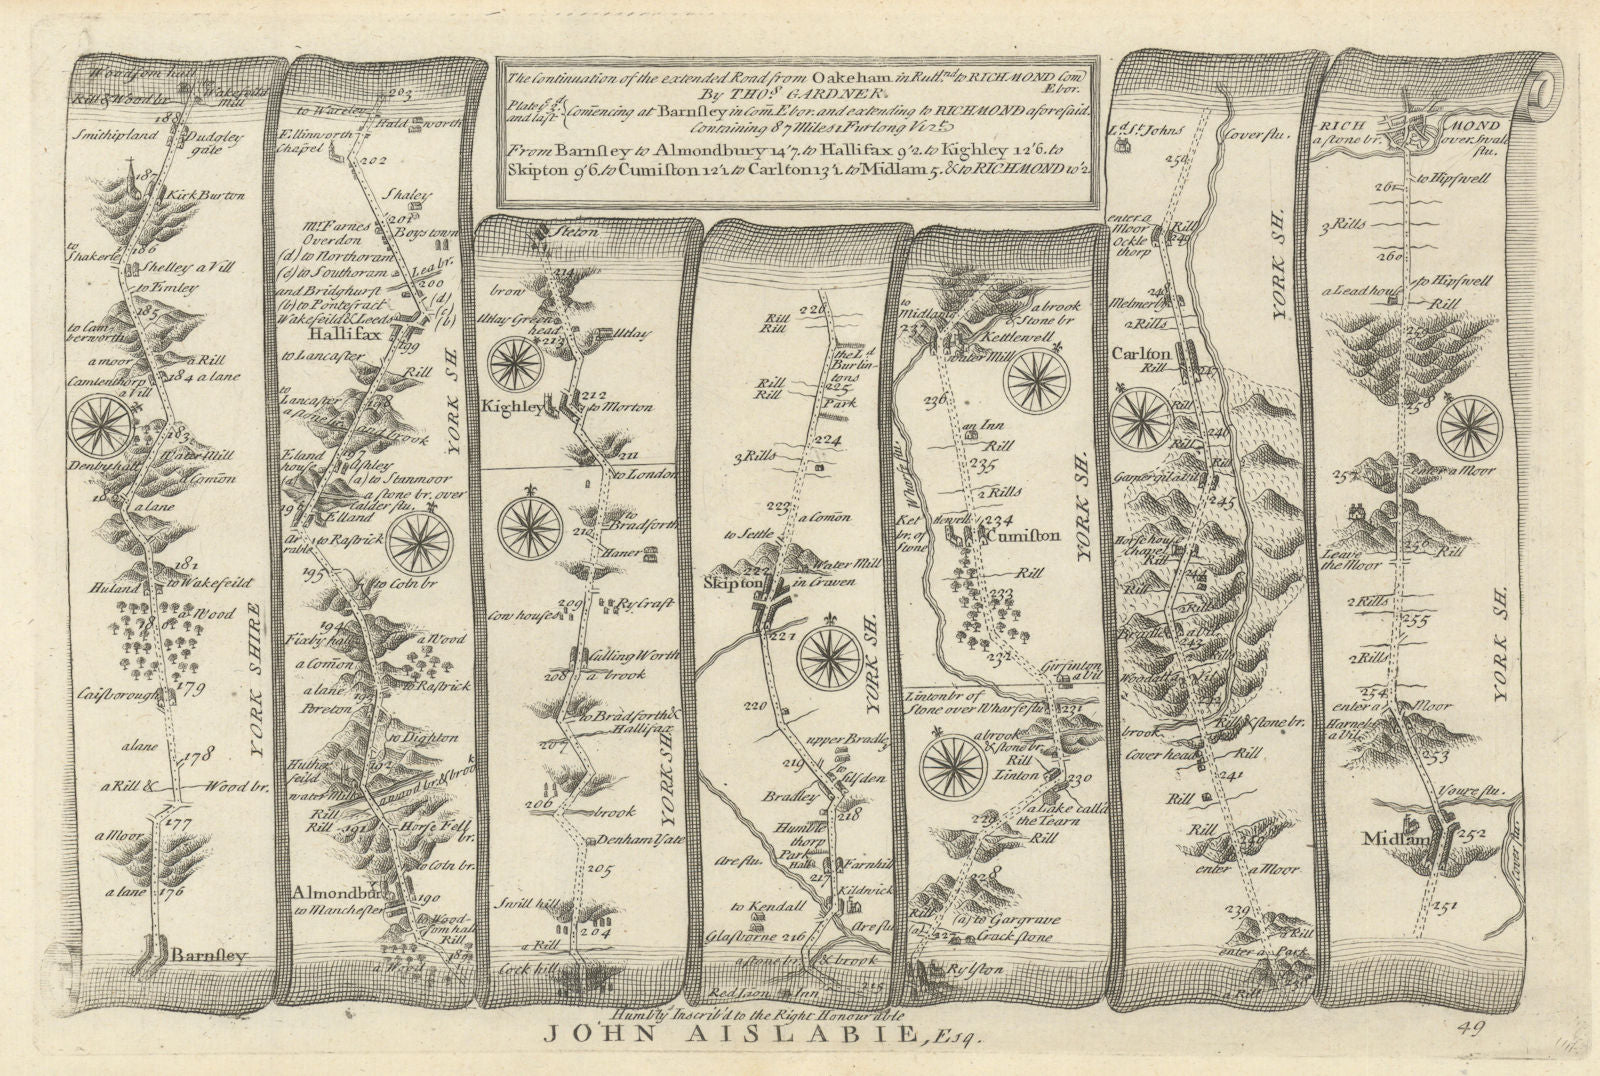 The Continuation of the extended Road from Oakeham in Rutl.nd to RICHMOND Com
Ebor.
By THOs GARDNER
Plate 2d and last
Com̄encing at Barnsley in Com. Ebor. and extending to RICHMOND aforesaid.
Containing 87 Miles 1 Furlong Viz.
From Barnsley to Almondbury 14'7. to Hallifax 9'2. to Kighley 12'6. to
Skipton 9'6. to Cumiston 12'1. to Carlton 13'1. to Midlam 5. & to RICHMOND 10'2.
Woodsom hall
Rill & Wood br.
Wakefeild mill
188
Smithipland
Dudgley gate
187
Kirk Burton
to Shakerle
186
Shelley a Vill
to Emley
185
to Cam-berworth
a moor
a Rill
184
a lane
Camlenthorp a Vill
183
Water Mill
Denby hall
a Com̄on
182
a lane
181
Huland
to Wakefeild
a Wood
180
179
Caisborough
a lane
178
a Rill &
Wood br.
177
a Moor
a lane
176
Barnsley
YORK SHIRE
203
to Wareley
Haldsworth
Ellinworth Chapel
202
Shaley
201
Mr. Farnes
Overdon
Boystown
(d) to Northoram
(c) to Southoram
Lea br.
200
and Bridghurst
(b) to Pontefract
(d)
(c)
(b)
Wakefeild & Leeds
Hallifax
199
to Lancaster
Rill
to Lancaster
198
a stone br. and brook
197
Eland house
Ashley
(a)
(a) to Stanmoor
a stone br. over Calder flu.
196
Elland
Ar rable
to Rastrick
195
to Coln br
194
Fixby hall
a Wood
a Com̄on
a lane
193
to Rastrick
Poreton
to Dighton
192
Huthersfeild
water Mills
a wood br. & brook
Rill
Rill
191
Horse Fell br.
to Coln br.
Almondbury
190
to Manchester
to Wood-som hall
Rill
189
a Wood
YORK SH.
Steton
214
brow
Utlay Green head
Utlay
213
212
Kighley
to Morton
211
to London
to Bradforth
210
Haner
209
Ry Craft
Cow houses
Culling Worth
208
a brook
to Bradforth & Hallifax
207
206
brook
Denham Yate
205
Swill hill
204
a Rill
Cock hill
YORK SH.
226
Rill
Rill
the Ld Burlin-tons
225
Park
Rill
Rill
224
3 Rills
223
a Com̄on
to Settle
222
Water Mill
Skipton
in Craven
221
220
upper Bradley
219
to Silsden
Bradley
218
Humble thorp
Park Hall
Farnhill
217
Are flu.
Kildwick
to Kendall
Are flu
Glasborne
216
a stone br. & brook
Red Lion Inn
215
YORK SH.
to Midlam
237
a brook & Stone br
Kettlewell
water Mill
236
an Inn
Rill
235
2 Rills
Wharfe flu.
Ket tlewell br. of Stone
234
Cumiston
Rill
233
232
Girsinton a Vil
Linton br of Stone over Wharfe flu
231
a brook & stone br
Rill
Linton
230
a Lake call'd the Tearn
229
Rill
228
Rill
(a) to Gargrave
(a)
227
Crackstone
Rylston
YORK SH.
Ld. St. Johns
Cover flu.
250
enter a Moor
Rill
249
Ockle thorp
248
Melmerby
2 Rills
Carlton
Rill
247
Rill
246
Rill
Rill
Gamersgil a Vil
245
Horsehouse chapel
Rill
244
Rill
2 Rills
Bradley a Vil.
243
Woodall a Vil
242
Rill & stone br.
brook
Cover head
Rill
241
Rill
Rill
240
enter a Moor
239
a Rill
enter a Park
238
a Rill
YORK SH.
RICH MOND
a stone br. over Swale flu.
to Hipswell
261
3 Rills
260
to Hipswell
a Lead house
Rill
259
258
enter a Moor
257
256
Rill
Leave the Moor
2 Rills
255
2 Rills
254
enter a Moor
Harneby a Vil
253
Youre flu.
Midlam
252
Cover flu.
251
YORK SH.
Humbly Inscrib'd to the Right Honourable
JOHN AISLABIE, Esq.
49